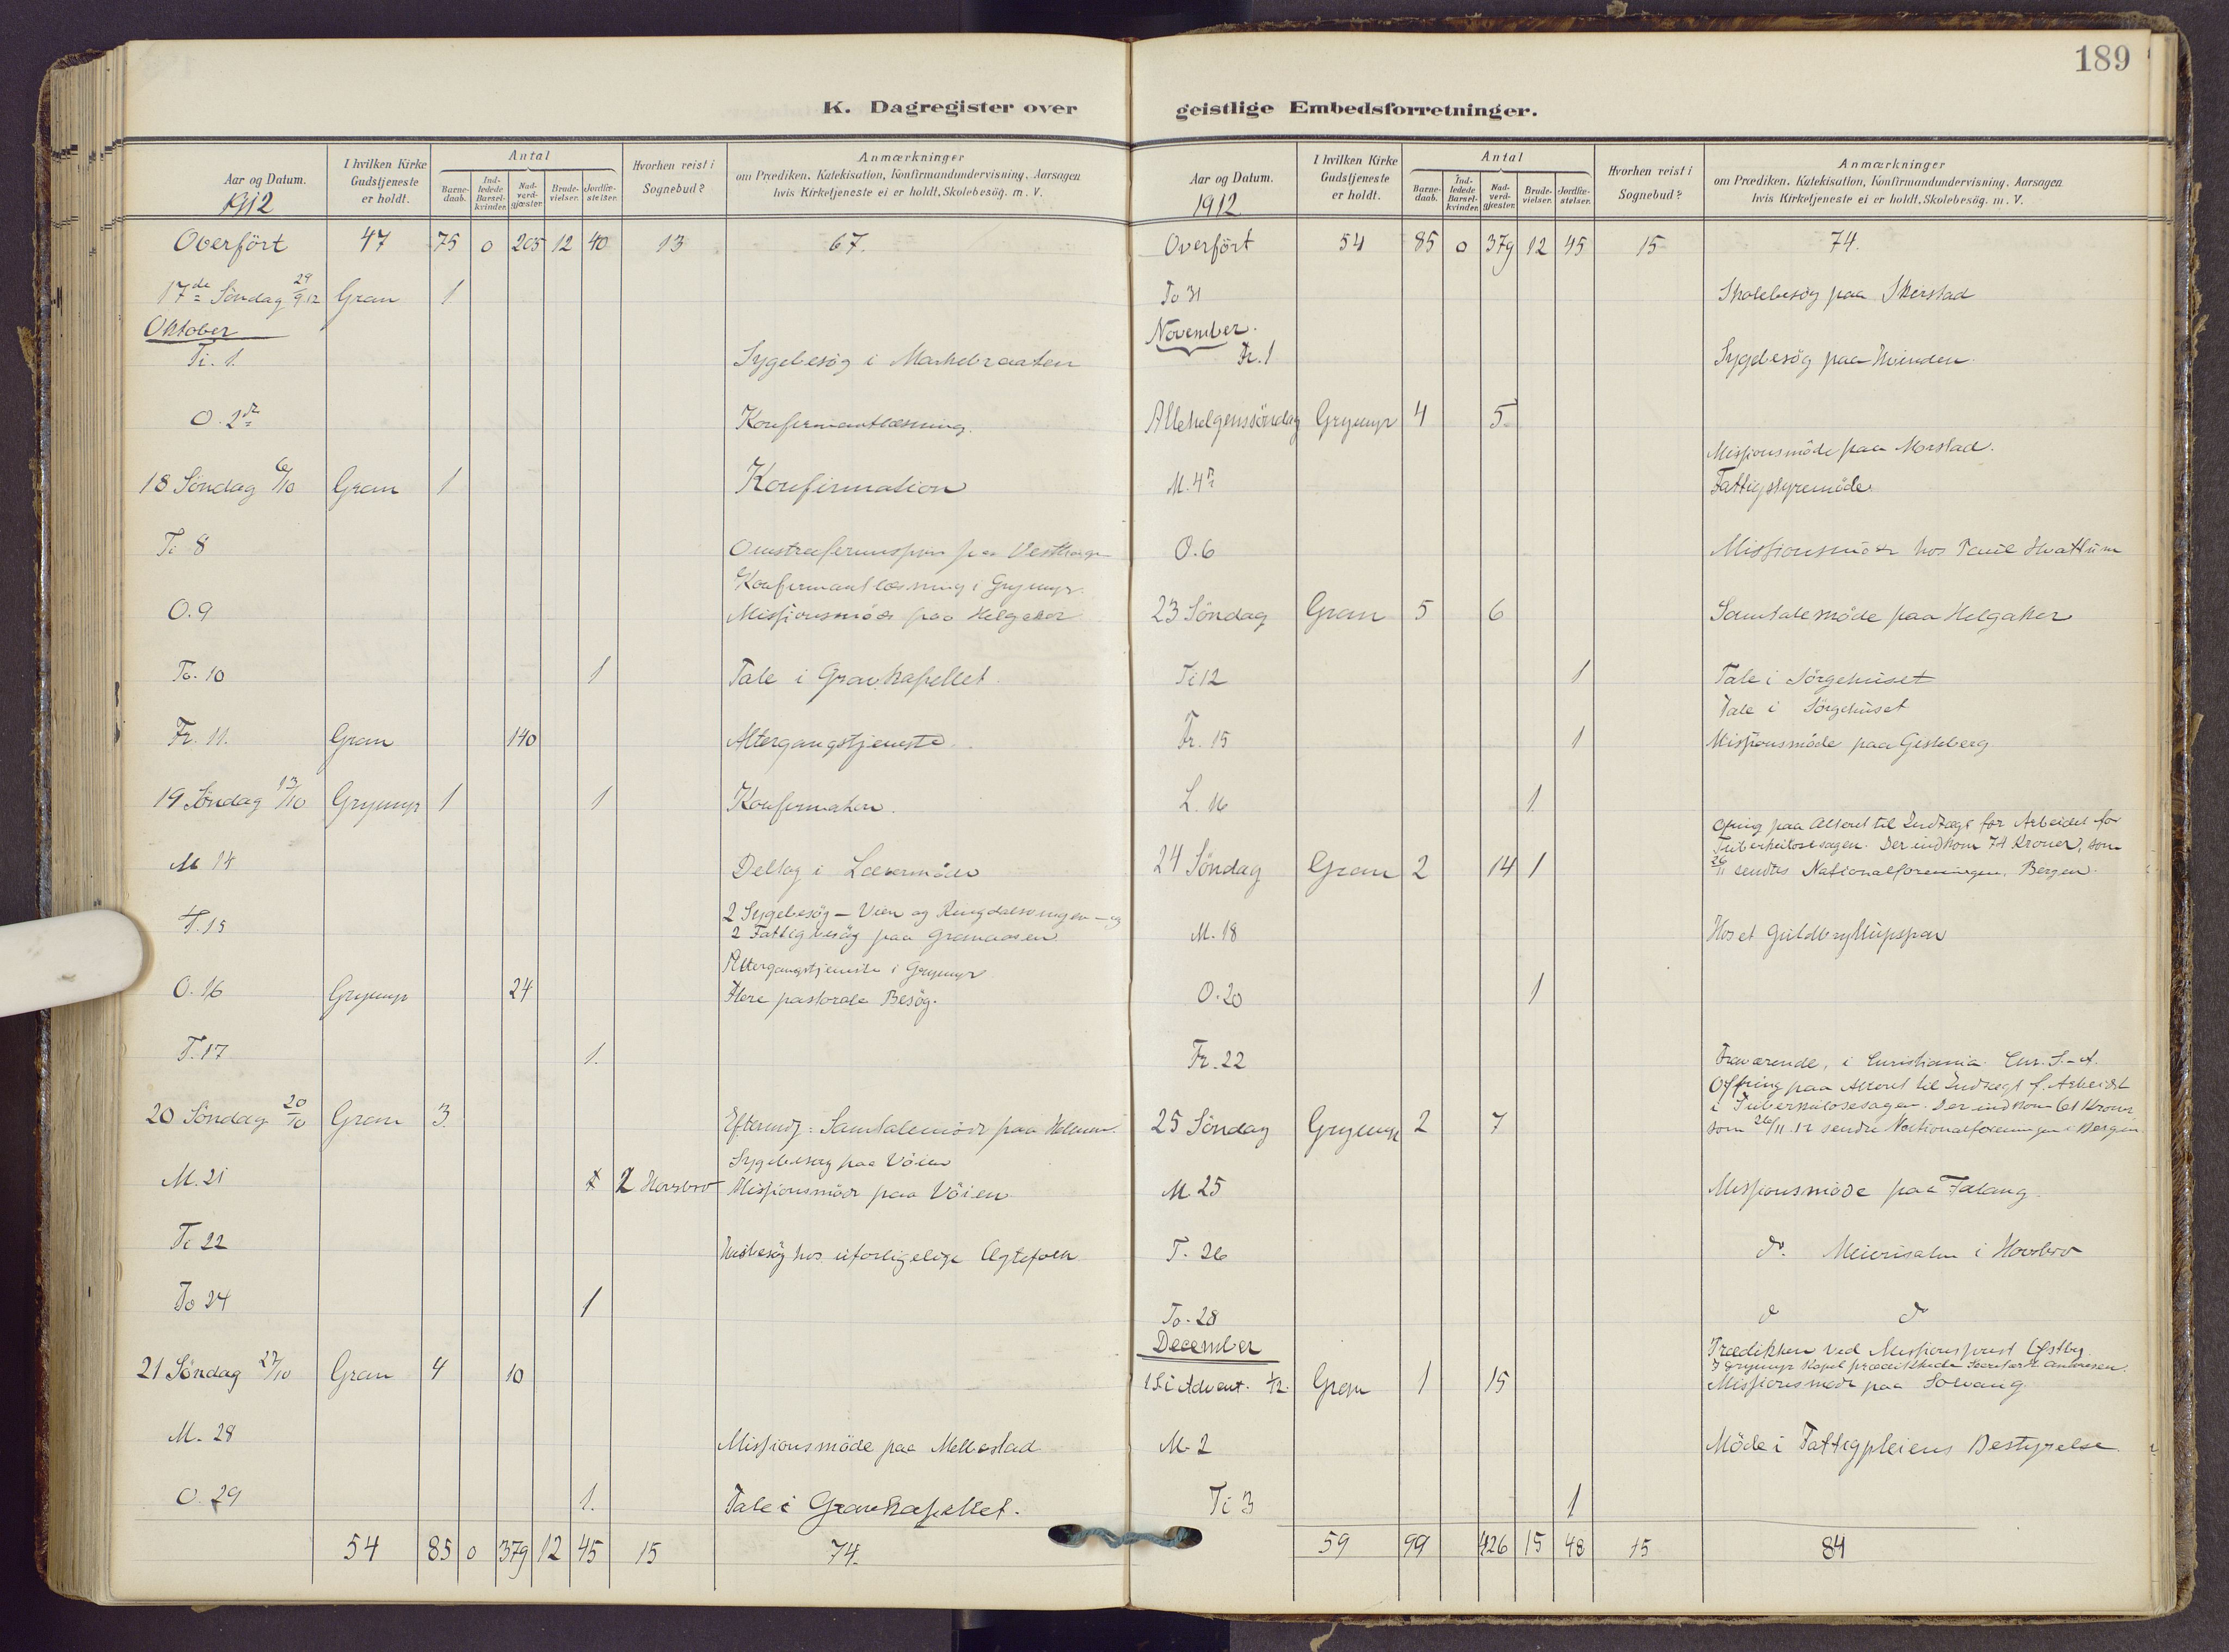 189
K. Dagregister over geistlige Embedsforretninger.
Aar og Datum. 1912 | I hvilken Kirke Gudstjeneste er holdt. | Antal | Barnedaab. | Indledede Barselkvinder. | Nadverdgjæster. | Brudevielser. | Jordfæstelser. | Hvorhen reist i Sognebud? | Anmærkninger om Prædiken. Katekisation, Konfirmandundervisning. Aarsagen hvis Kirketjeneste ei er holdt, Skolebesög. m. V.
Overført 47 75 0 205 12 40 13 67.
17de Söndag 29/9 12 Gran 1
Oktober
Ti. 1. Sygebesög i Markebraaten
O. 2de Konfirmantlæsning.
18 Söndag 6/10 Gran 1 Konfirmation
Ti 8
Konfirmantlæsning i Grymyr.
O. 9 Missionsmöde paa Helgaker
To. 10 1 Tale i Gravkapellet
Fr. 11. Gran 140 Altergangstjeneste.
19 Söndag 13/10 Grymyr 1 1 Konfirmation.
M 14 Deltog i Lærermöde
T. 15 2 Sygebesög – Vien og Ringdalsvingen – og
2 Fattigbesög paa Granaasen
Altergangstjeneste i Grymyr
O. 16 Grymyr 24 Flere pastorale Besög.
T. 17 1.
20 Söndag 20/10 Gran 3 Eftermdg: Samtalemöde paa
Sygebesög paa Vöien
M. 21 2 Hovsbro Missionsmöde paa Vöien
Ti 22 Husbesög hos uforligelige Ægtefolk
To 24 1
21 Söndag 27/10 Gran 4 10
M. 28 Missionsmöde paa Mellestad
O. 29 1. Tale i Gravkapellet.
54 85 0 379 12 45 15 74.
Aar og Datum. 1912 | I hvilken Kirke Gudstjeneste er holdt. | Antal | Barnedaab. | Indledede Barselkvinder. | Nadverdgjæster. | Brudevielser. | Jordfæstelser. | Hvorhen reist i Sognebud? | Anmærkninger om Prædiken. Katekisation, Konfirmandundervisning. Aarsagen hvis Kirketjeneste ei er holdt, Skolebesög. m. V.
Overført 54 85 0 379 12 45 15 74.
To 31 Skolebesög paa Skerstad
November.
Fr. 1 Sygebesög paa Hvinden
Allehelgenssöndag Grymyr 4 5
Missionsmöde paa Morstad.
M. 4de Fattigstyremöde
O. 6 Missionsmöde hos Paul Hvattum
23 Söndag Gran 5 6 Samtalemöde paa Helgaker
Ti 12 1 Tale i Sörgehuset
Tale i Sörgehuset
Fr. 15 1 Missionsmöde paa Gisleberg
L. 16 1
Ofring paa Alteret til Indtægt for Arbeidet for
Tuberkulosesagen. Der indkom 74 Kroner, som
24 Söndag Gran 2 14 1 26/11 sendtes Nationalforeningen, Bergen.
M. 18 Hos et Guldbryllupspar
O. 20 1
Fr. 22 Fraværende, i Christiania Chr. S.-A.
Offring paa Alteret til Indtægt f. Arbeidet
i Tuberkulosesagen. Der indkom 61 Kroner
25 Söndag Grymyr 2 7 som 26/11.12 sendte Nationalforeningen i Bergen.
M. 25 Missionsmöde paa Falang.
T. 26 do. Meierisalen i Hovsbro
To. 28 do do
December
Prædiken ved Missionsprest Østby.
I Grymyr Kapel prædikede Andresen.
1 S. i Advent. 1/12. Gran 1 15 Missionsmöde paa Solvang
M. 2 Möde i Fattigpleiens Bestyrelse
Ti 3 1
59 99 426 15 48 15 84